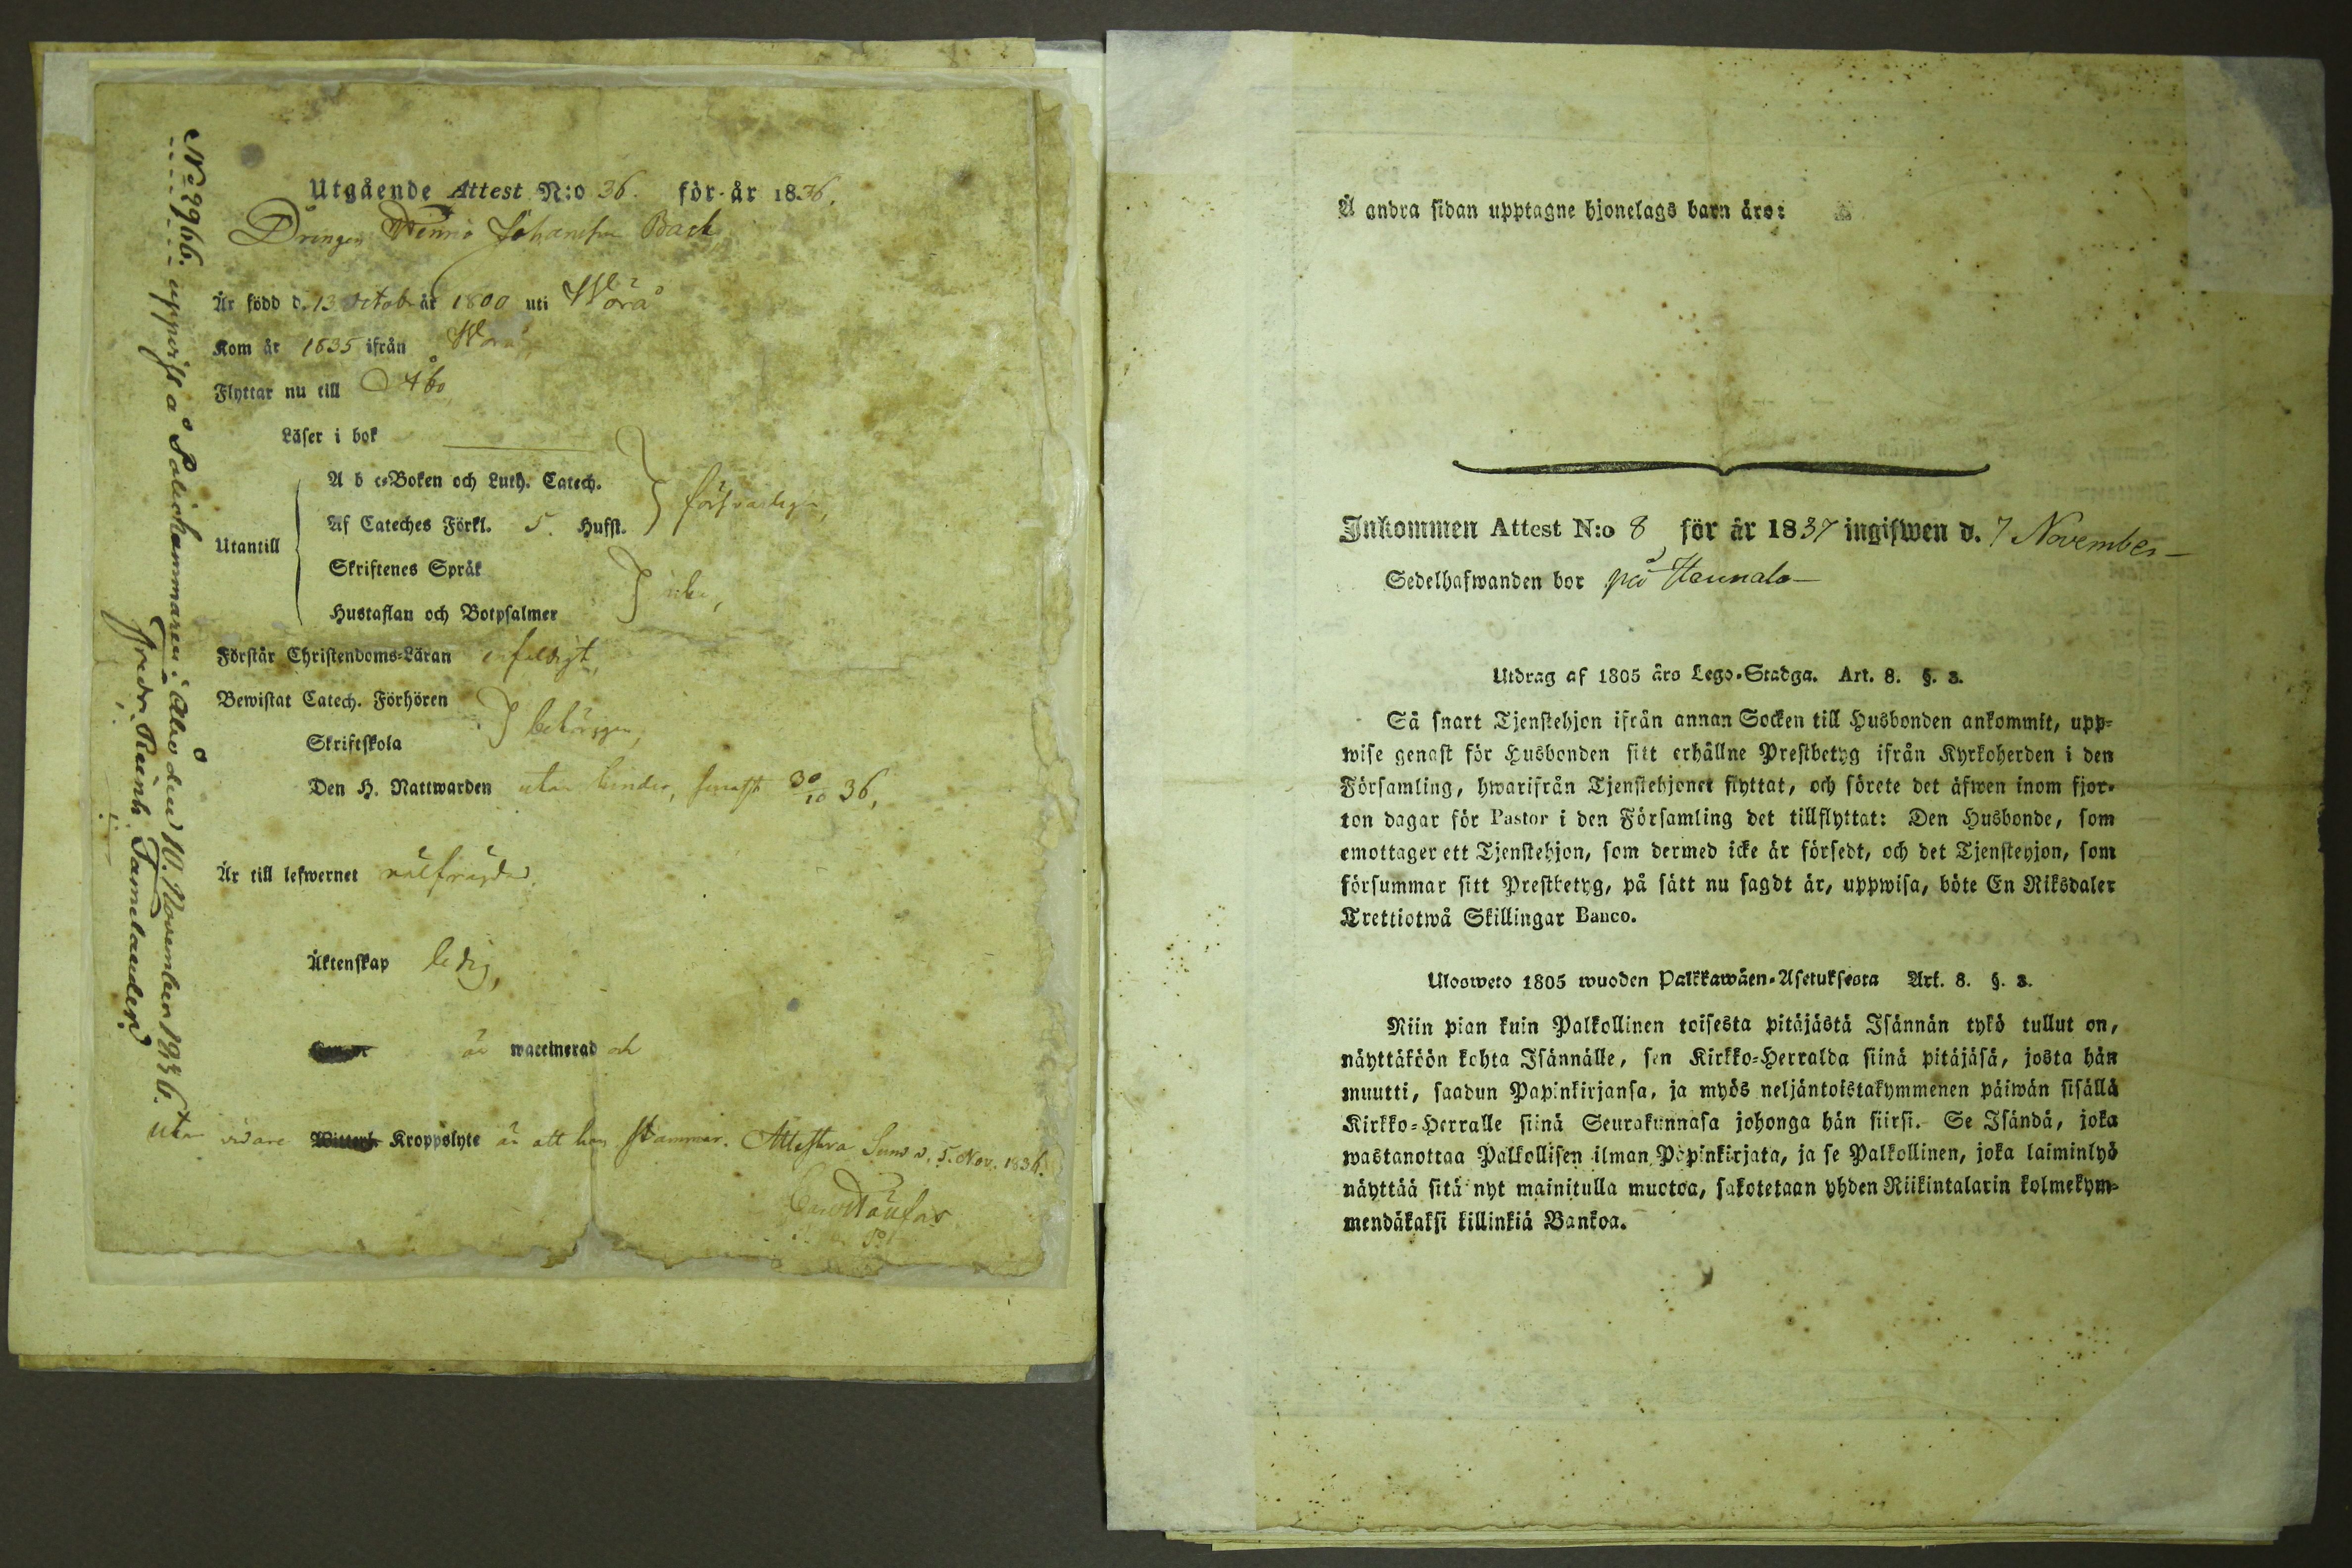 Utgående Attest N:o 36. för år 1836.
Drängen Johansson Back
Är född d. 13 Octobr år 1800 uti Wörå
Kom år 1835 ifrån Wörå,
Flyttar nu till Åbo,
Läser i bok
A b c-Boken och Luth. Catech.
Af Cateches Förkl. 5. Hufst. försvarligen,
Utantill
Skriftenes Språk
Hustaflan och Botpsalmer icke,
Förstår Christendoms-Läran enfaldigt,
Bewistat Catech. Förhören
Skriftskola behörigen,
Den H. Nattwarden utan hinder, senast 30/10 36,
Är till lefwernet välfrägdad,
Äktenskap ledig,
är waccinerad och
utan vidare Kroppslyte än att han stammar. Attestera Sund d. 5. Nov. 1836.
No 2966. uppvist å Policekammaren i Åbo den 10. November 1836.
Fredr. Reinh. Tamelander
Å andra sidan upptagne hjonelags barn äro:
Inkommen Attest N:o 8 för år 1837 ingifwen d. 7 November
Sedelhafwanden bor på Haunala
Utdrag af 1805 års Lego-Stadga. Art. 8. §. 3.
Så snart Tjenstehjon ifrån annan Socken till Husbonden ankommit, upp-
wise genast för Husbonden sitt erhållne Prestbetyg ifrån Kyrkoherden i den
Församling, hwarifrån Tjenstehjonet flyttat, och förete det äfwen inom fjor-
ton dagar för Pastor i den Församling det tillflyttat: Den Husbonde, som
emottager ett Tjenstehjon, som dermed icke är försedt, och det Tjenstehjon, som
försummar sitt Prestbetyg, på sätt nu sagdt är, uppwisa, böte En Riksdaler
Trettiotwå Skillingar Banco.
Ulosweto 1805 wuoden Palkkawäen-Asetuksesta Art. 8. §. 3.
Niin pian kuin Palkollinen toisesta pitäjästä Isännän tykö tullut on,
näyttäköön kohta Isännälle, sen Kirkko-Herralda siinä pitäjäsä, josta hän
muutti, saadun Papinkirjansa, ja myös neljäntoistakymmenen päiwän sisällä
Kirkko-Herralle siinä Seurakunnasa johonga hän siirsi. Se Isändä, joka
wastanottaa Palkollisen ilman Papinkirjata, ja se Palkollinen, joka laiminlyö
näyttää sitä nyt mainitulla muotoa, sakotetaan yhden Riikintalarin kolmekym-
mendäkaksi killinkiä Bankoa.